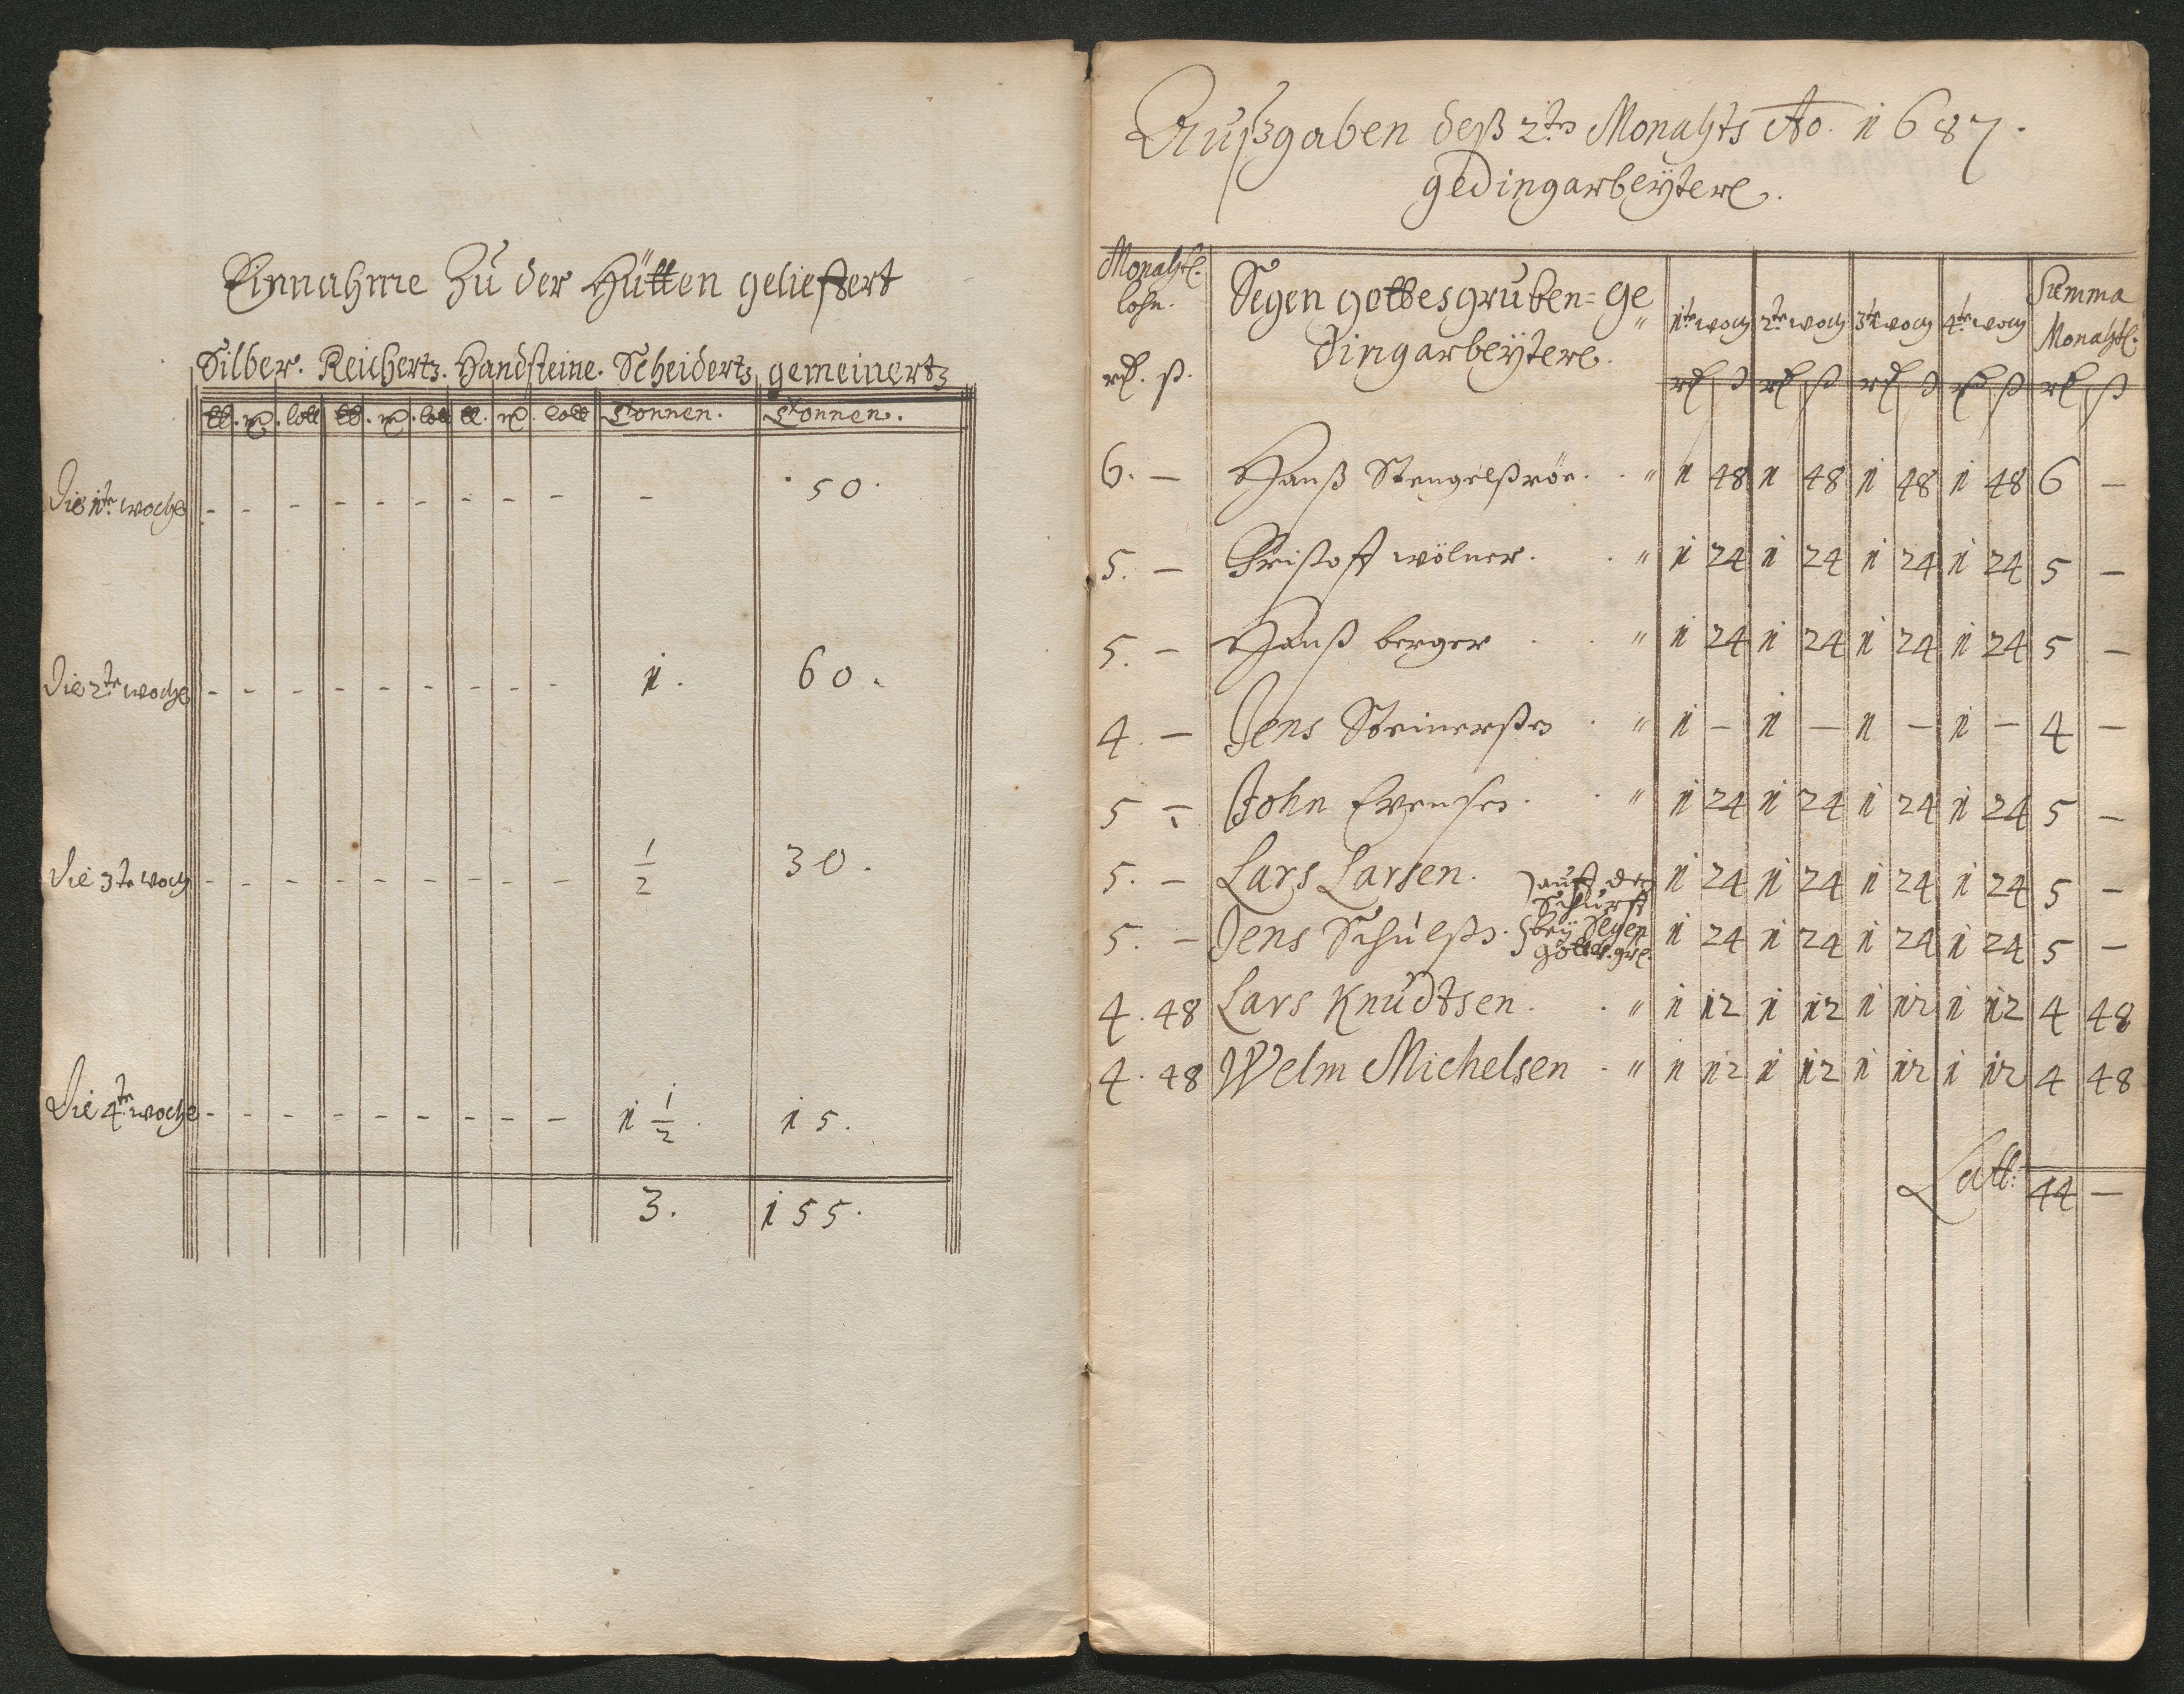 Einnahme Zu der Hütten gelieffert
Silber. Reichertz. Handsteine. Scheidertz gemeinertz
℔. mk. lott ℔. mk. lott ℔. mk. lott Tonnen. Tonnen.
Die 1te woche - - - - - - - - - - 50.
Die 2te woche - - - - - - - - - 1. 60.
Die 3te woch - - - - - - - - - 1/2 30.
Die 4te woche - - - - - - - - - 1 1/2. 15.
3. 155.
Außgaben deß 2ten Monahts Ao. 1687.
gedingarbeyter.
Monahtl. lohn. Segen gottes gruben= ge 1te woch 2te woch 3te woch 4te woch Summa Monahtl.
rd. ß. dingarbeytere. rd ß rd ß rd ß rd ß rd ß
6. — Hanß Stengelßröe. " 1 48 1 48 1 48 1 48 6 —
5. — Cristoff wölner. " 1 24 1 24 1 24 1 24 5 —
5. — Hanß berger " 1 24 1 24 1 24 1 24 5 —
4. — Jens Steinerßen " 1 — 1 — 1 — 1 — 4 —
5 — John Evensen. " 1 24 1 24 1 24 1 24 5 —
5. — Lars Larsen. } auf den Schurff 1 24 1 24 1 24 1 24 5 —
5. — Jens Schulßen. } bey Segen gottes. gr. 1 24 1 24 1 24 1 24 5 —
4. 48 Lars Knudtsen. " 1 12 1 12 1 12 1 12 4 48
4. 48 Welm Michelsen. " 1 12 1 12 1 12 1 12 4 48
Latt: 44 —